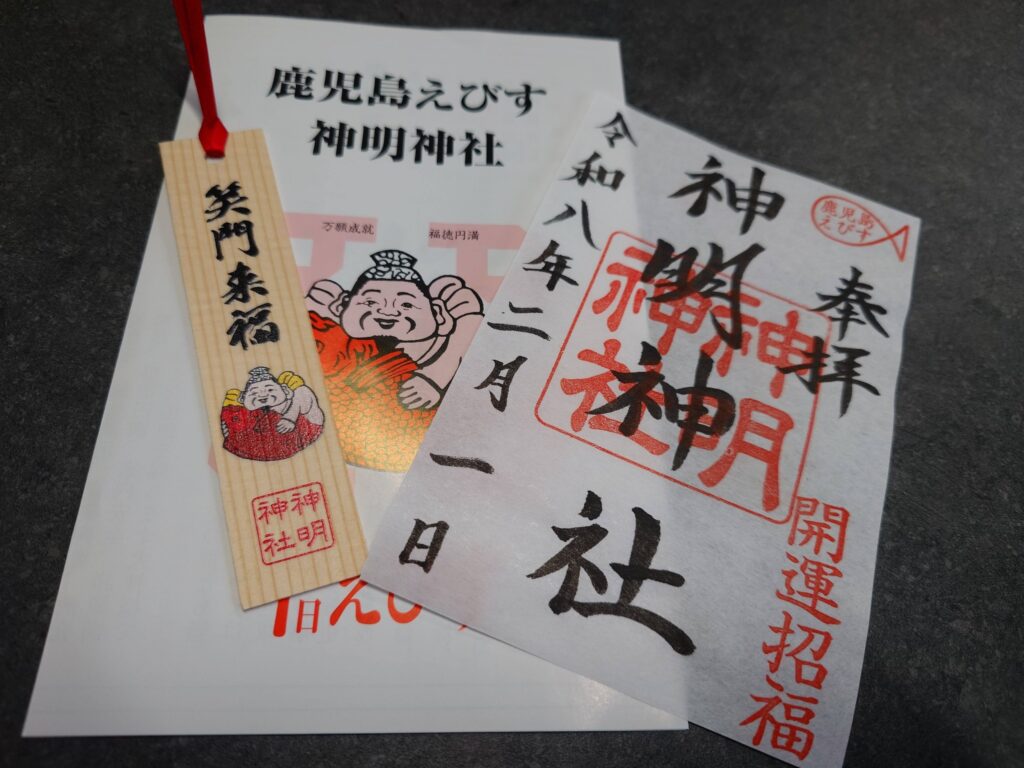 鹿児島えびす
神明神社
万願成就
福徳円満
1日えび
笑門来福
神明
神社
奉拝
鹿児島
えびす
神明神社
神明
神社
開運招福
令和八年二月一日